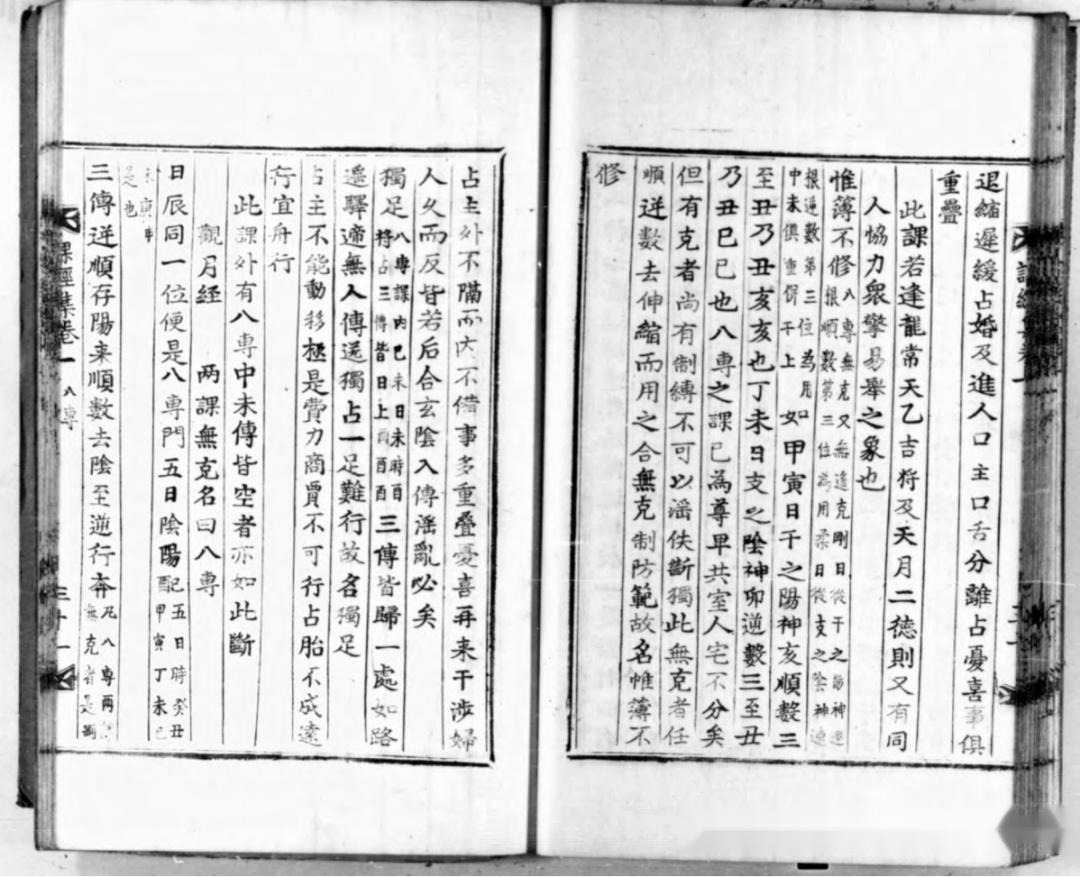 退縮遲緩占婚及進人口主口舌分離占憂喜事俱
重疊
此課若逢龍常天乙吉将及天月二德則又有同
人恊力衆擎易舉之象也
惟薄不修八專無克又無遥克剛日從干之陽神進
根順數第三位為用柔日從支之陰神逆
根逆數第三位為用
中末俱重併干上如甲寅日干之陽神亥順數三
至丑乃丑亥亥也丁未日支之陰神卯逆數三至丑
乃丑巳巳也八專之課已為尊卑共室人宅不分矣
但有克者尚有制縛不可以滛佚斷獨此無克者任
順逆數去伸縮而用之合無克制防範故名帷薄不
修
占主外不隔而内不備事多重疊憂喜再来干涉婦
人久而反皆若后合玄陰入傳滛亂必矣
獨足八專課内己未日未時酉
将占三傳皆日上酉酉酉三傳皆歸一處如路
遥驛遞無人傳送獨占一足難行故名獨足
占主不能動移極是費力商賈不可行占胎不成遠
行宜舟行
此課外有八專中未傳皆空者亦如此斷
觀月經 两課無克名曰八專
日辰同一位便是八專門五日陰陽配五日時癸丑
甲寅丁未己
未庚申
是也
三傳逆順存陽来順數去陰至逆行奔凡八專两
無克者是
課經集卷一 八專 三十一